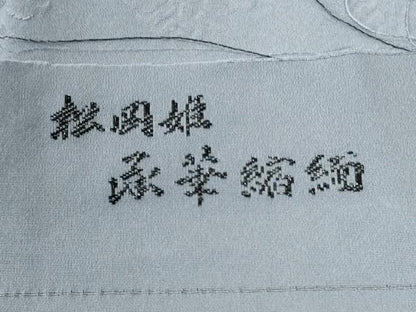 松岡姫
承華縮緬